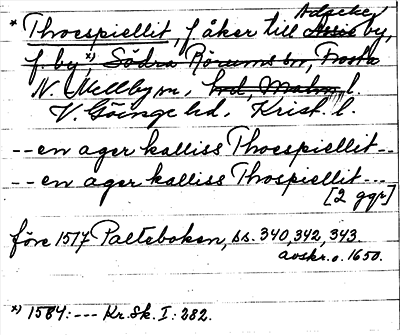 Adseke
* Thoespiellit, f åker till Assie by,
f. by,*) Södra Rörums sn, Frosta
N. Mellby sn, hd, Malm. l.
V. Göinge hd, Krist. l.
--en ager kalliss Thoespiellit--
--en ager kalliss Thospiellit---
[2 ggr]
före 1517 Palteboken, ss. 340, 342, 343.
avskr. o. 1650.
*) 1584: --- Kr. Sk. I: 282.